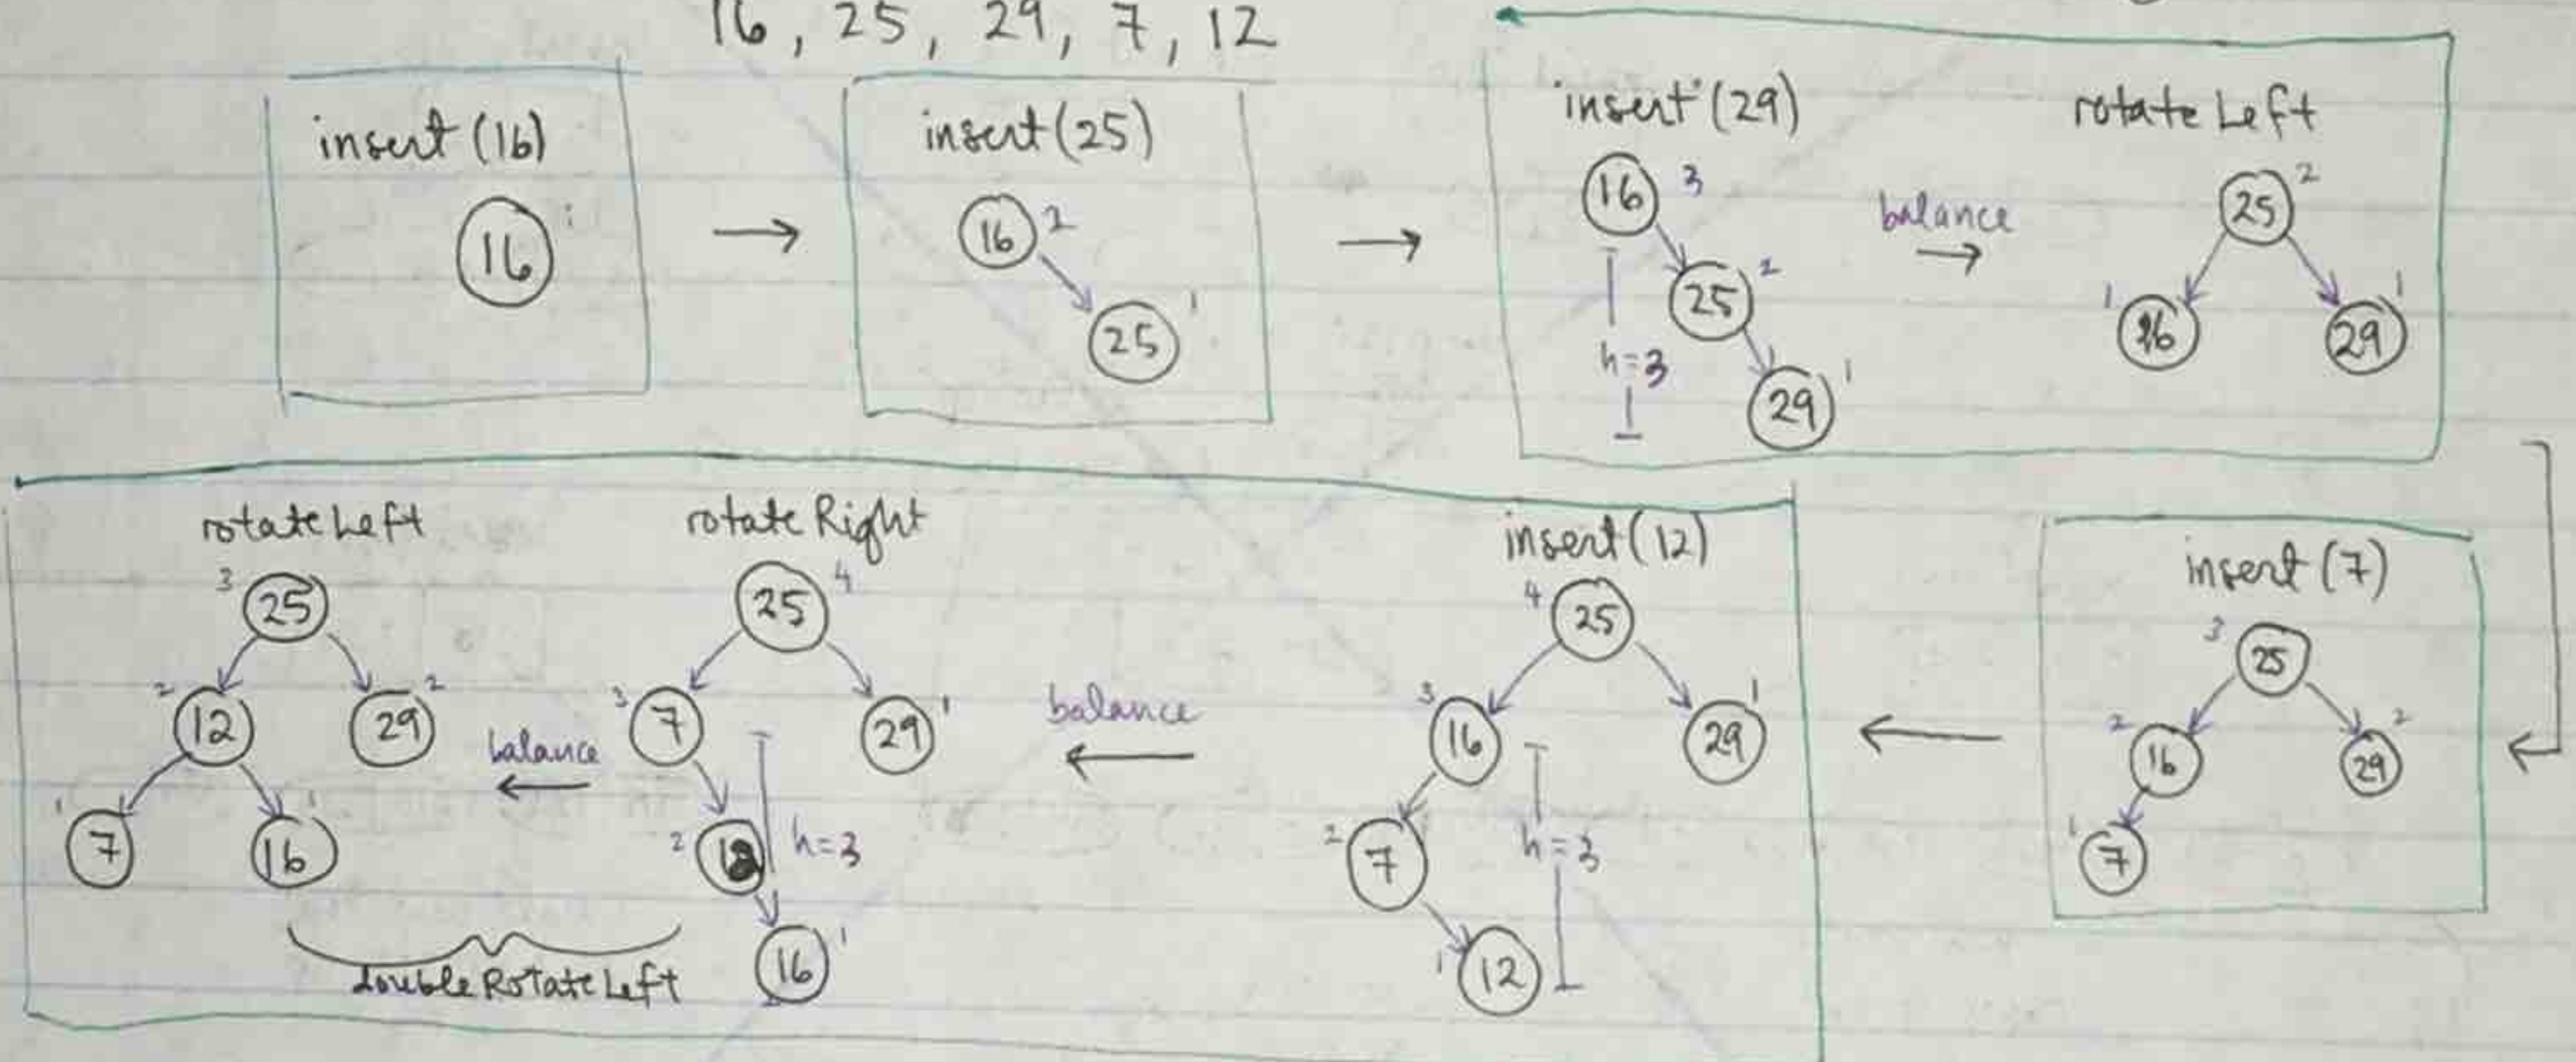 16, 25, 29, 7, 12
insert (16)
16
insert (25)
16 2
25 1
insert (29)
16 3
25 2
29 1
h=3
balance
rotate Left
25 2
1 16
29 1
insert (7)
3 25
2 16
29 2
1 7
insert (12)
4 25
3 16
29 1
2 7
1 12
h=3
balance
rotate Right
25 4
3 7
29 1
2
16 1
h=3
balance
rotate Left
3 25
2 12
29 2
1 7
16 1
double Rotate Left